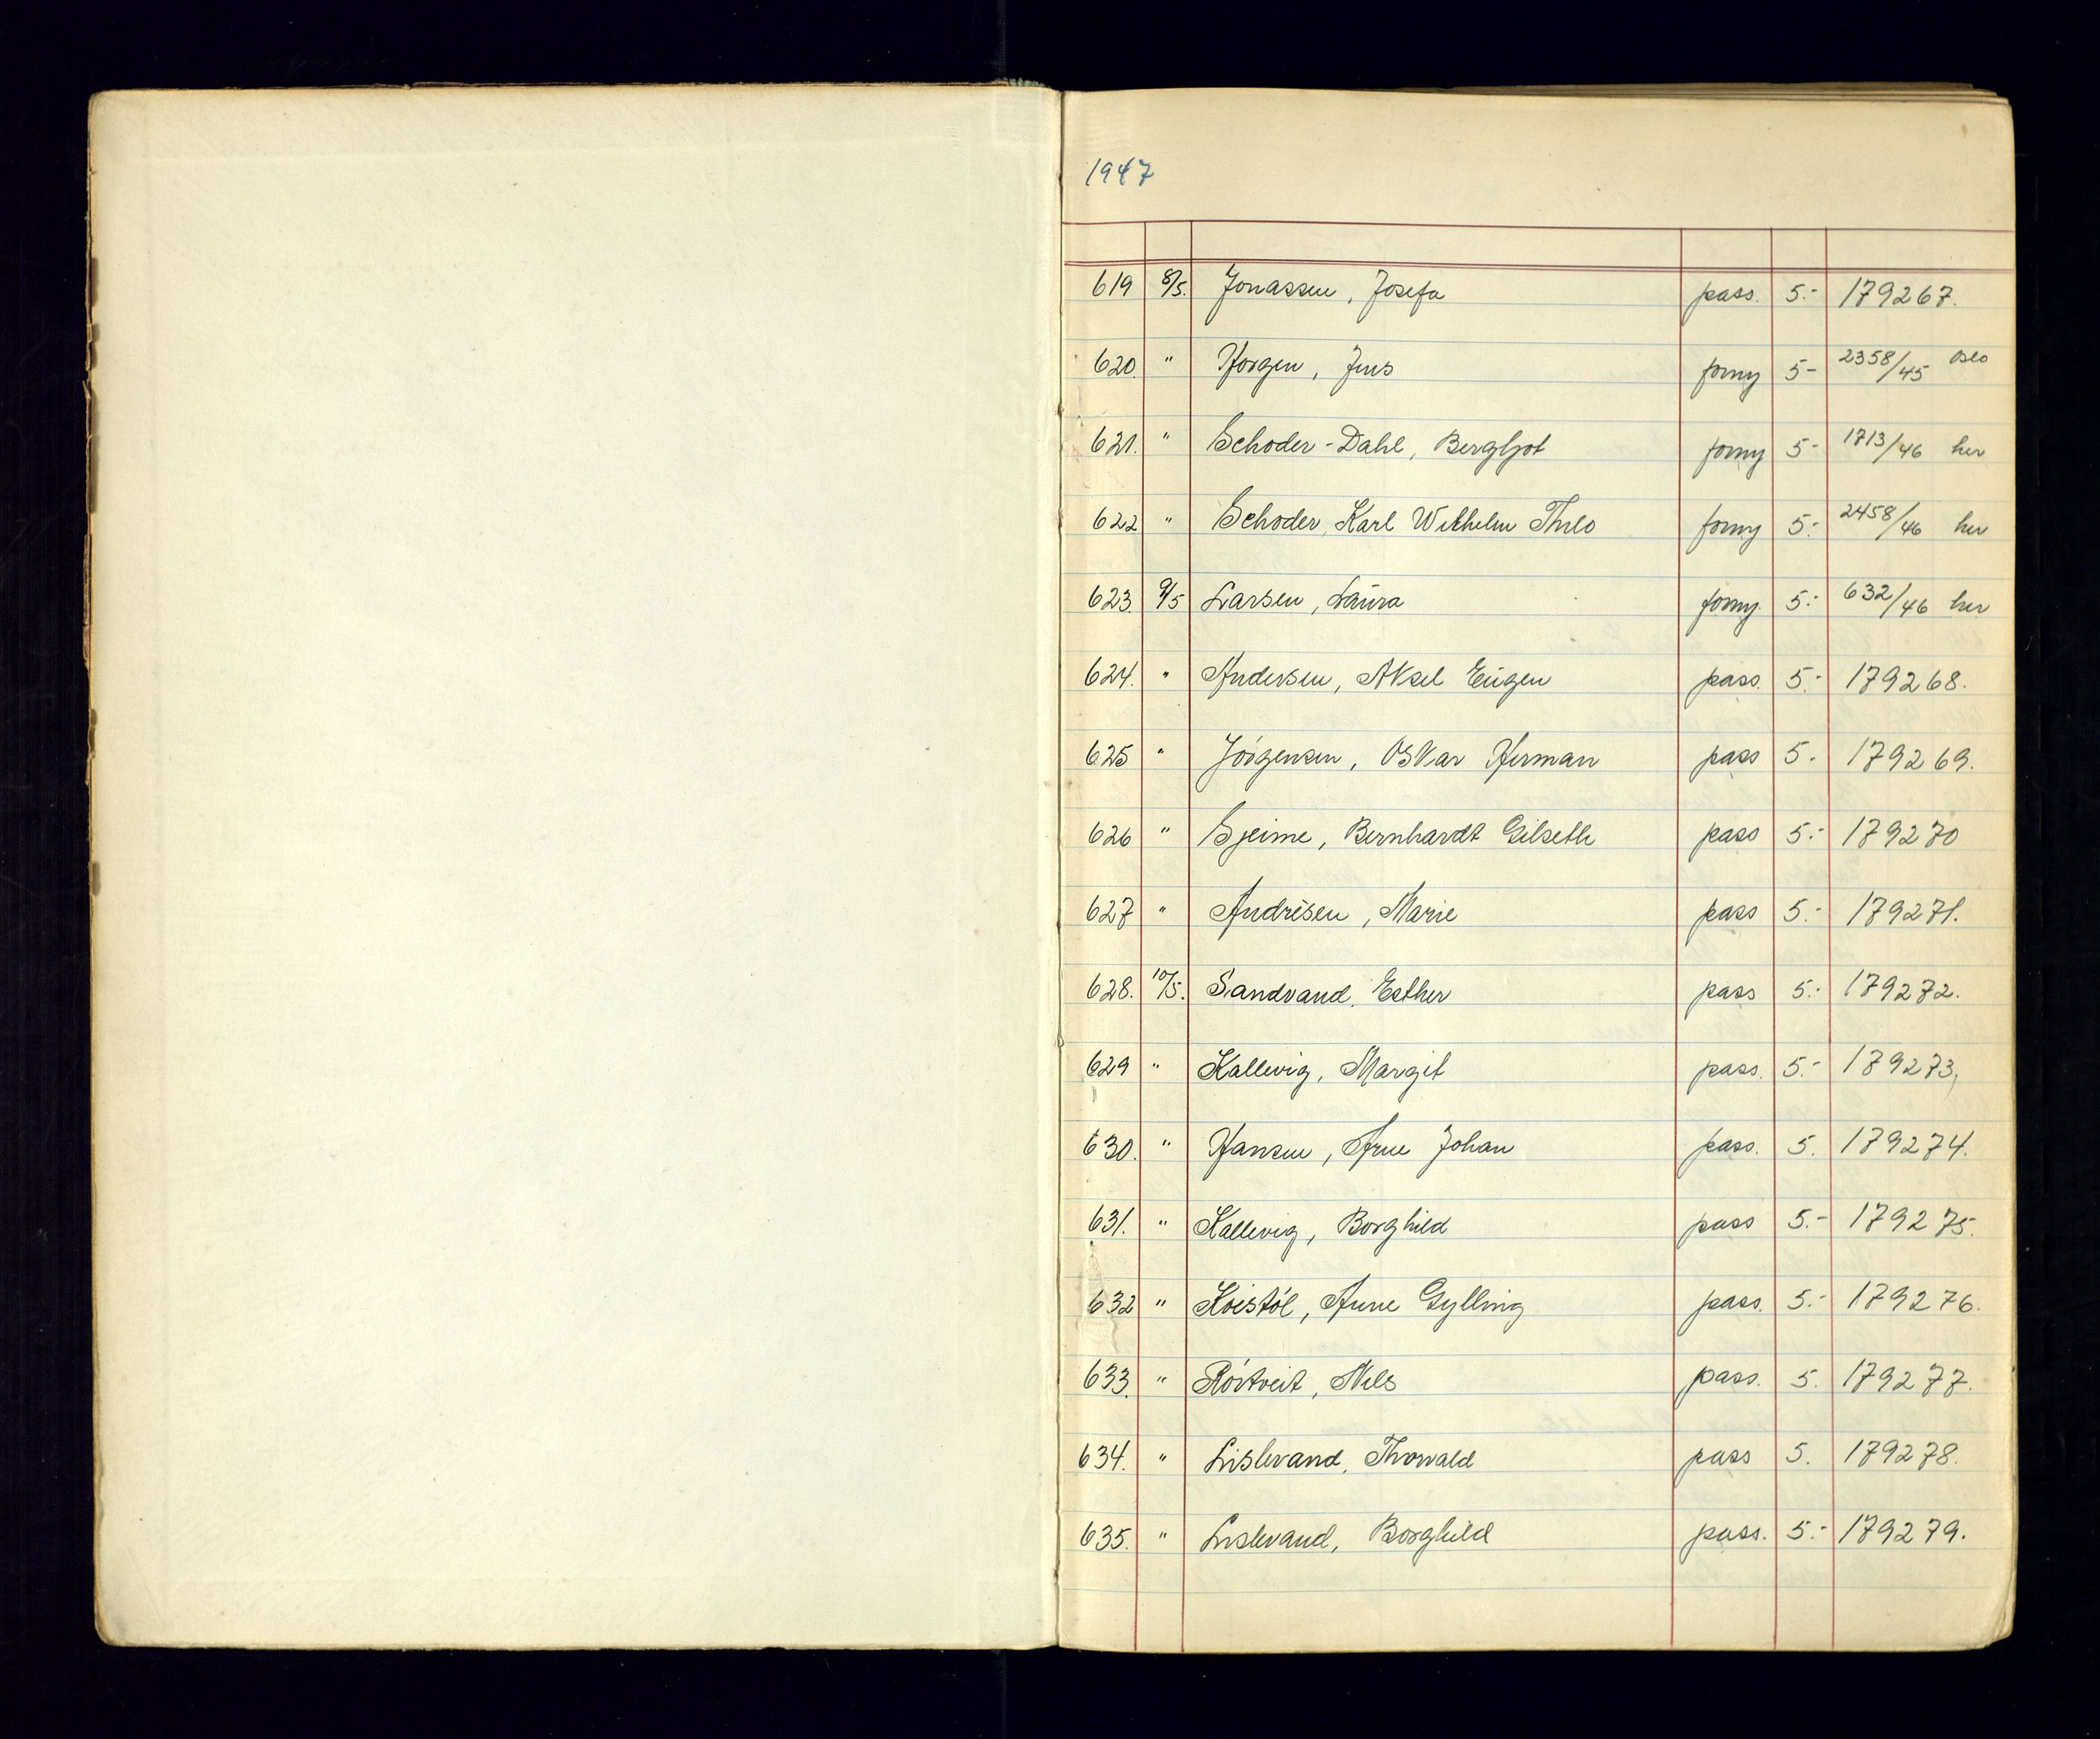 1947
619 8/5. Jonassen, Josefa pass. 5.- 179267.
620. " Horgen, Jens forny 5- 2358/45 Oslo
621. " Schoder-Dahl, Bergljot forny 5- 1713/46 her
622 " Schoder, Karl Wilhelm Thilo forny 5.- 2458/46 her
623. 9/5 Larsen, Laura forny. 5.- 632/46 her
624. " Andersen, Aksel Eugen pass. 5.- 179268.
625 " Jörgensen, Oskar Herman pass 5.- 179269.
626 " Gjeime, Bernhardt Gilseth pass 5.- 179270
627 " Andrésen, Marie pass 5.- 179271.
628. 10/5. Sandvand, Esther pass 5.- 179272.
629 " Kallevig, Margit pass. 5.- 179273,
630. " Hansen, Arne Johan pass. 5. 179274.
631. " Kallevig, Borghild pass 5.- 179275.
632 " Kvistöl, Anne Gylling pass. 5.- 179276.
633. " Rörtveit, Nils pass. 5. 179277.
634. " Lislevand, Thorvald pass 5. 179278.
635. " Lislevand, Borghild pass. 5.- 179279.